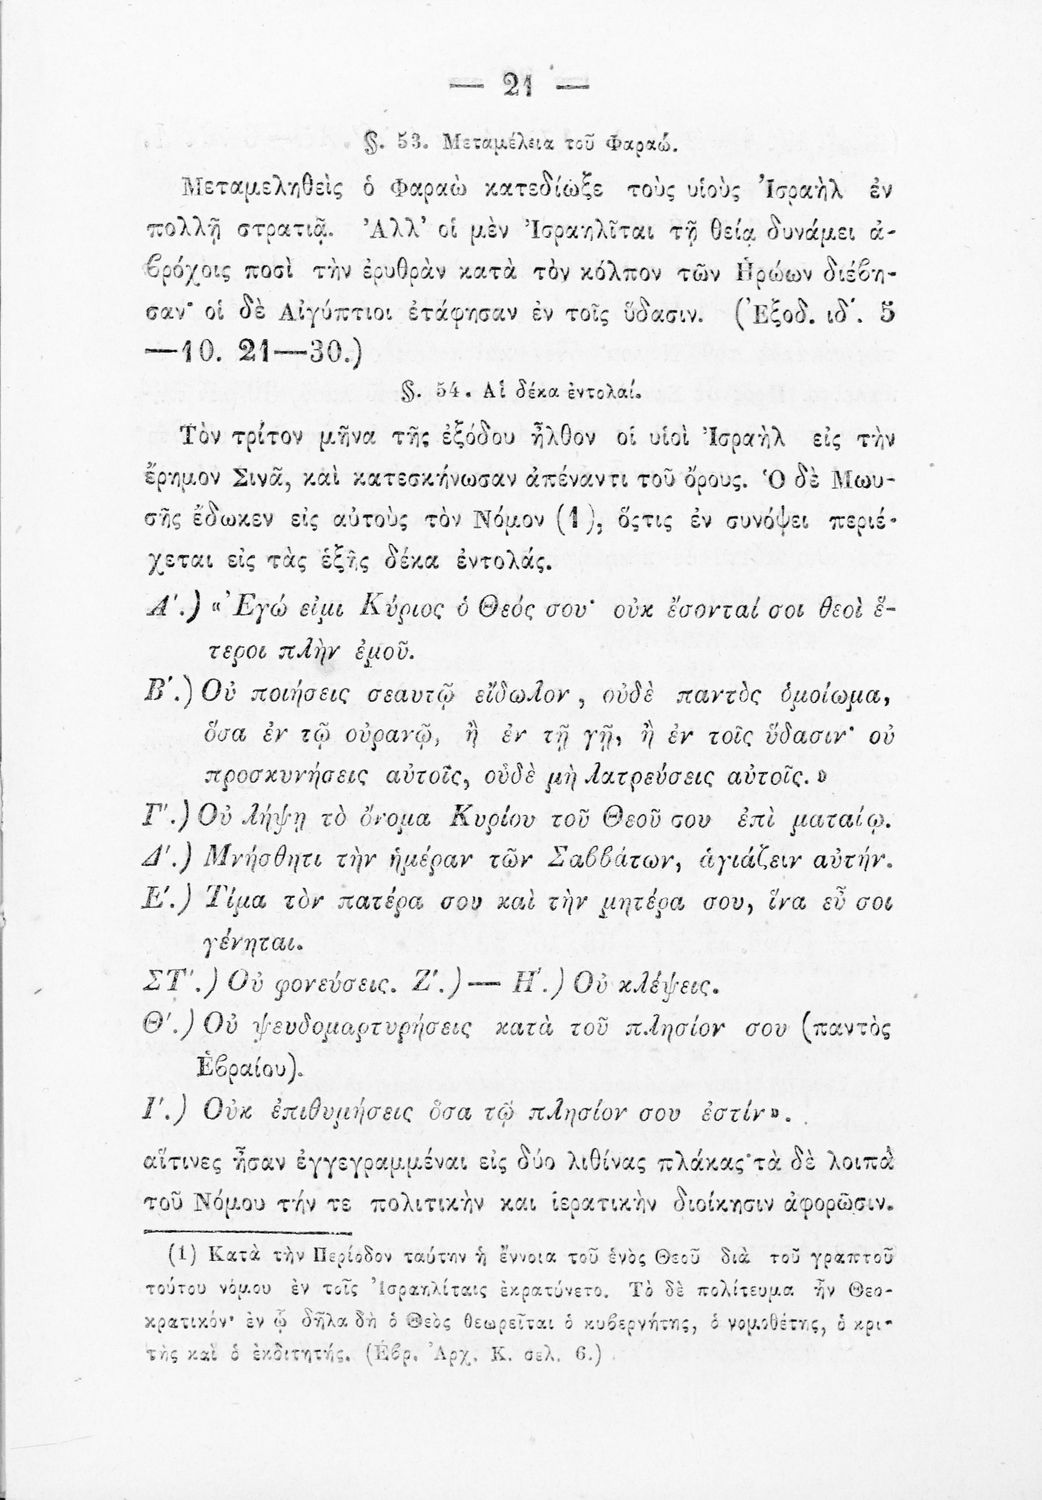 — 21 —
§. 53. Μεταμέλεια τοῦ Φαραώ.
Μεταμεληθεὶς ὁ Φαραὼ κατεδίωξε τοὺς υἱοὺς Ἰσραὴλ ἐν
πολλῇ στρατιᾷ. Ἀλλ' οἱ μὲν Ἰσραηλῖται τῇ θείᾳ δυνάμει ἀ-
βρόχοις ποσὶ τὴν ἐρυθρὰν κατὰ τὸν κόλπον τῶν Ἡρώων διέβη-
σαν· οἱ δὲ Αἰγύπτιοι ἐτάφησαν ἐν τοῖς ὕδασιν. (Ἐξοδ. ιδ΄. 5
—10. 21—30.)
§. 54. Αἱ δέκα ἐντολαί.
Τὸν τρίτον μῆνα τῆς ἐξόδου ἦλθον οἱ υἱοὶ Ἰσραὴλ εἰς τὴν
ἔρημον Σινᾶ, καὶ κατεσκήνωσαν ἀπέναντι τοῦ ὄρους. Ὁ δὲ Μωυ-
σῆς ἔδωκεν εἰς αὐτοὺς τὸν Νόμον (1), ὅςτις ἐν συνόψει περιέ-
χεται εἰς τὰς ἑξῆς δέκα ἐντολάς.
Α΄.) «Ἐγώ εἰμι Κύριος ὁ Θεός σου· οὐκ ἔσονταί σοι θεοὶ ἕ-
τεροι πλὴν ἐμοῦ.
Β΄.) Οὐ ποιήσεις σεαυτῷ εἴδωλον, οὐδὲ παντὸς ὁμοίωμα,
ὅσα ἐν τῷ οὐρανῷ, ἢ ἐν τῇ γῇ, ἢ ἐν τοῖς ὕδασιν· οὐ
προσκυνήσεις αὐτοῖς, οὐδὲ μὴ λατρεύσεις αὐτοῖς.»
Γ΄.) Οὐ λήψῃ τὸ ὄνομα Κυρίου τοῦ Θεοῦ σου ἐπὶ ματαίῳ.
Δ΄.) Μνήσθητι τὴν ἡμέραν τῶν Σαββάτων, ἁγιάζειν αὐτήν.
Ε΄.) Τίμα τὸν πατέρα σου καὶ τὴν μητέρα σου, ἵνα εὖ σοι
γένηται.
ΣΤ΄.) Οὐ φονεύσεις. Ζ΄.)— Η΄.) Οὐ κλέψεις.
Θ΄.) Οὐ ψευδομαρτυρήσεις κατὰ τοῦ πλησίον σου (παντὸς
Ἑβραίου).
Ι΄.) Οὐκ ἐπιθυμήσεις ὅσα τῷ πλησίον σου ἐστίν».
αἵτινες ἦσαν ἐγγεγραμμέναι εἰς δύο λιθίνας πλάκας· τὰ δὲ λοιπὰ
τοῦ Νόμου τήν τε πολιτικὴν και ἱερατικὴν διοίκησιν ἀφορῶσιν.
(1) Κατὰ τὴν Περίοδον ταύτην ἡ ἔννοια τοῦ ἑνὸς Θεοῦ διὰ τοῦ γραπτοῦ
τούτου νόμου ἐν τοῖς Ἰσραηλίταις ἐκρατύνετο. Τὸ δὲ πολίτευμα ἦν Θεο-
κρατικόν· ἐν ᾧ δῆλα δὴ ὁ Θεὸς θεωρεῖται ὁ κυβερνήτης, ὁ νομοθέτης, ὁ κρι-
τὴς καὶ ὁ ἐκδιτητής. (Ἑβρ. Ἀρχ. Κ. σελ. 6.)